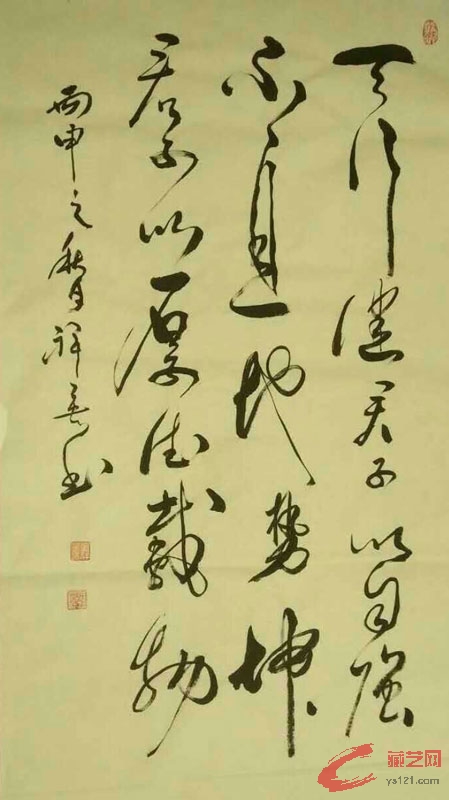 天行健君子以自強
不息地勢坤
君子以厚德載物
丙申之秋月祥書
藏艺网
ys121.com